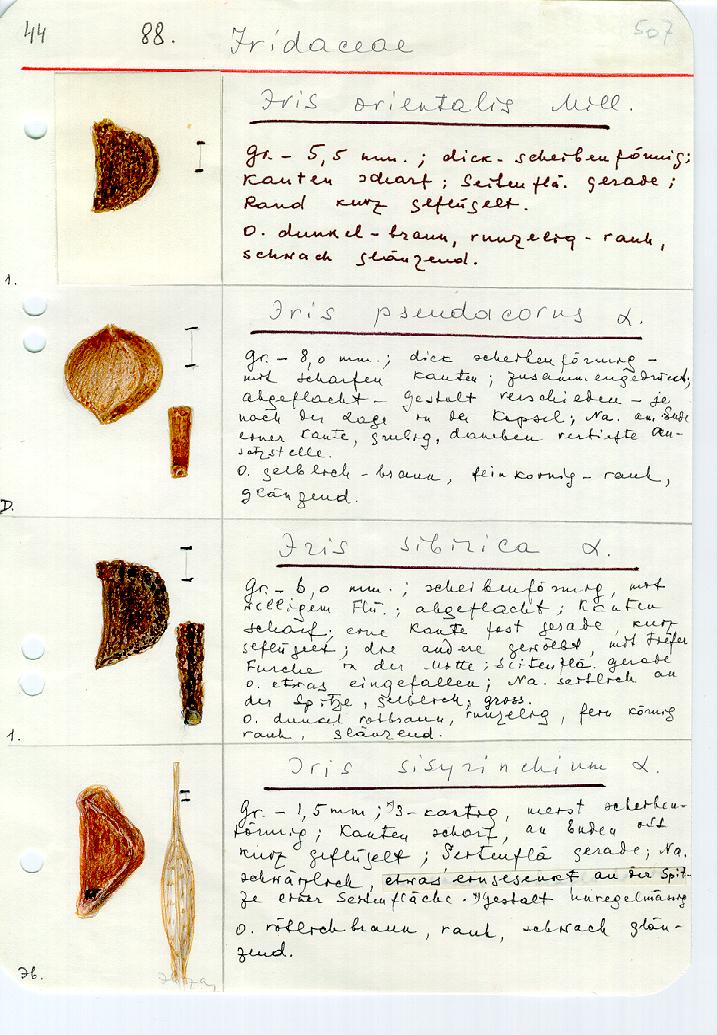 44 88. Iridaceae 507
Iris orientalis Mill.
Gr. - 5,5 mm. ; dick-scheibenförmig;
Kanten scharf ; Seitenflä. gerade ;
Rand kurz geflügelt.
O. dunkel-braun, runzelig-rauh,
schwach glänzend.
1.
Iris pseudacorus L.
Gr. - 8,0 mm. ; dick scheibenförmig -
mit scharfen Kanten ; zusammengedrückt,
abgeflacht - Gestalt verschieden - je
nach der Lage in der Kapsel ; Na. am Ende
einer Kante, grubig, daneben vertiefte An-
satzstelle.
O. gelblich-braun, feinkörnig-rauh,
glänzend.
D.
Iris sibirica L.
Gr. - 6,0 mm. ; scheibenförmig, mit
zelligem Flü. ; abgeflacht ; Kanten
scharf, eine Kante fast gerade, kurz
geflügelt ; die andere gewölbt, mit tiefer
Furche in der Mitte ; Seitenflä. gerade
o. etwas eingefallen ; Na. seitlich an
der Spitze, gelblich, gross.
O. dunkel rotbraun, runzelig, fein körnig
rauh, glänzend.
1.
Iris sisyrinchium L.
Gr. - 1,5 mm ; 3-kantig, meist scheiben-
förmig ; Kanten scharf, an Enden oft
kurz geflügelt ; Seitenflä gerade ; Na.
schwärzlich, etwas eingesenkt an der Spit-
ze einer Seitenfläche. Gestalt unregelmässig
O. rötlichbraun, rauh, schwach glän-
zend.
Jb.